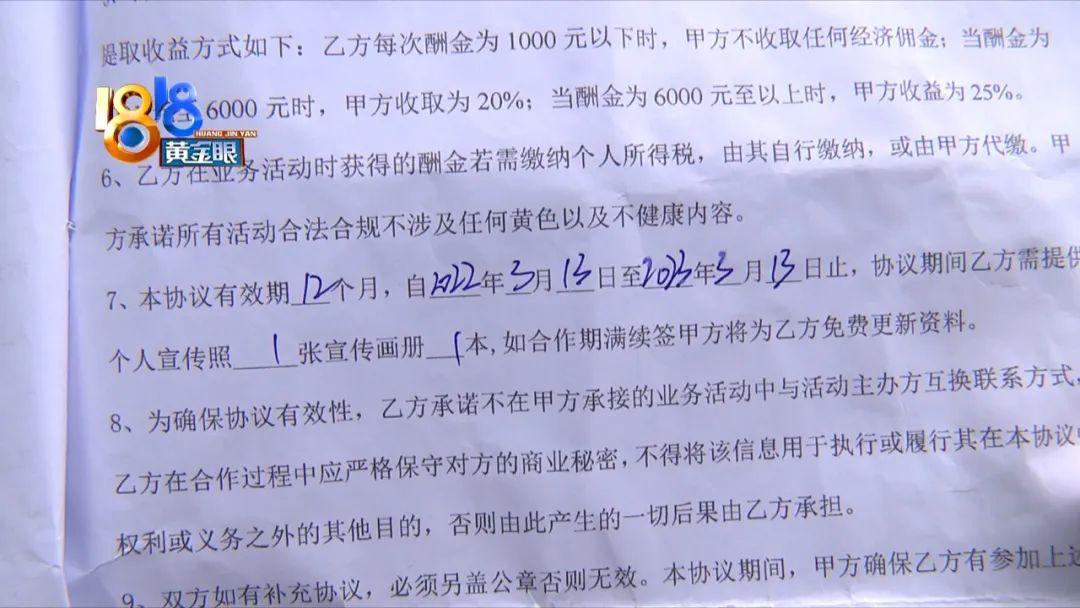 提取收益方式如下：乙方每次酬金为1000元以下时，甲方不收取任何经济佣金；当酬金为
6000元时，甲方收取为20%；当酬金为6000元至以上时，甲方收益为25%。
1818
HUANG JIN YAN
黄金眼
6、乙方在业务活动时获得的酬金若需缴纳个人所得税，由其自行缴纳，或由甲方代缴。甲
方承诺所有活动合法合规不涉及任何黄色以及不健康内容。
7、本协议有效期12个月，自2022年3月13日至2023年3月13日止，协议期间乙方需提供
个人宣传照1张宣传画册1本,如合作期满续签甲方将为乙方免费更新资料。
8、为确保协议有效性，乙方承诺不在甲方承接的业务活动中与活动主办方互换联系方式，
乙方在合作过程中应严格保守对方的商业秘密,不得将该信息用于执行或履行其在本协议
权利或义务之外的其他目的，否则由此产生的一切后果由乙方承担。
9、双方如有补充协议，必须另盖公章否则无效。本协议期间，甲方确保乙方有参加上述